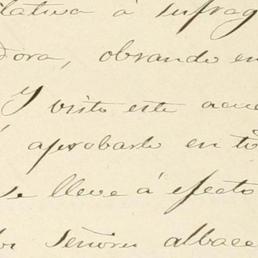 lativa á sufrag
dora, obrando en
Y visto este acue
aprobarlo en tō
se lleve á efecto
los Señores albace